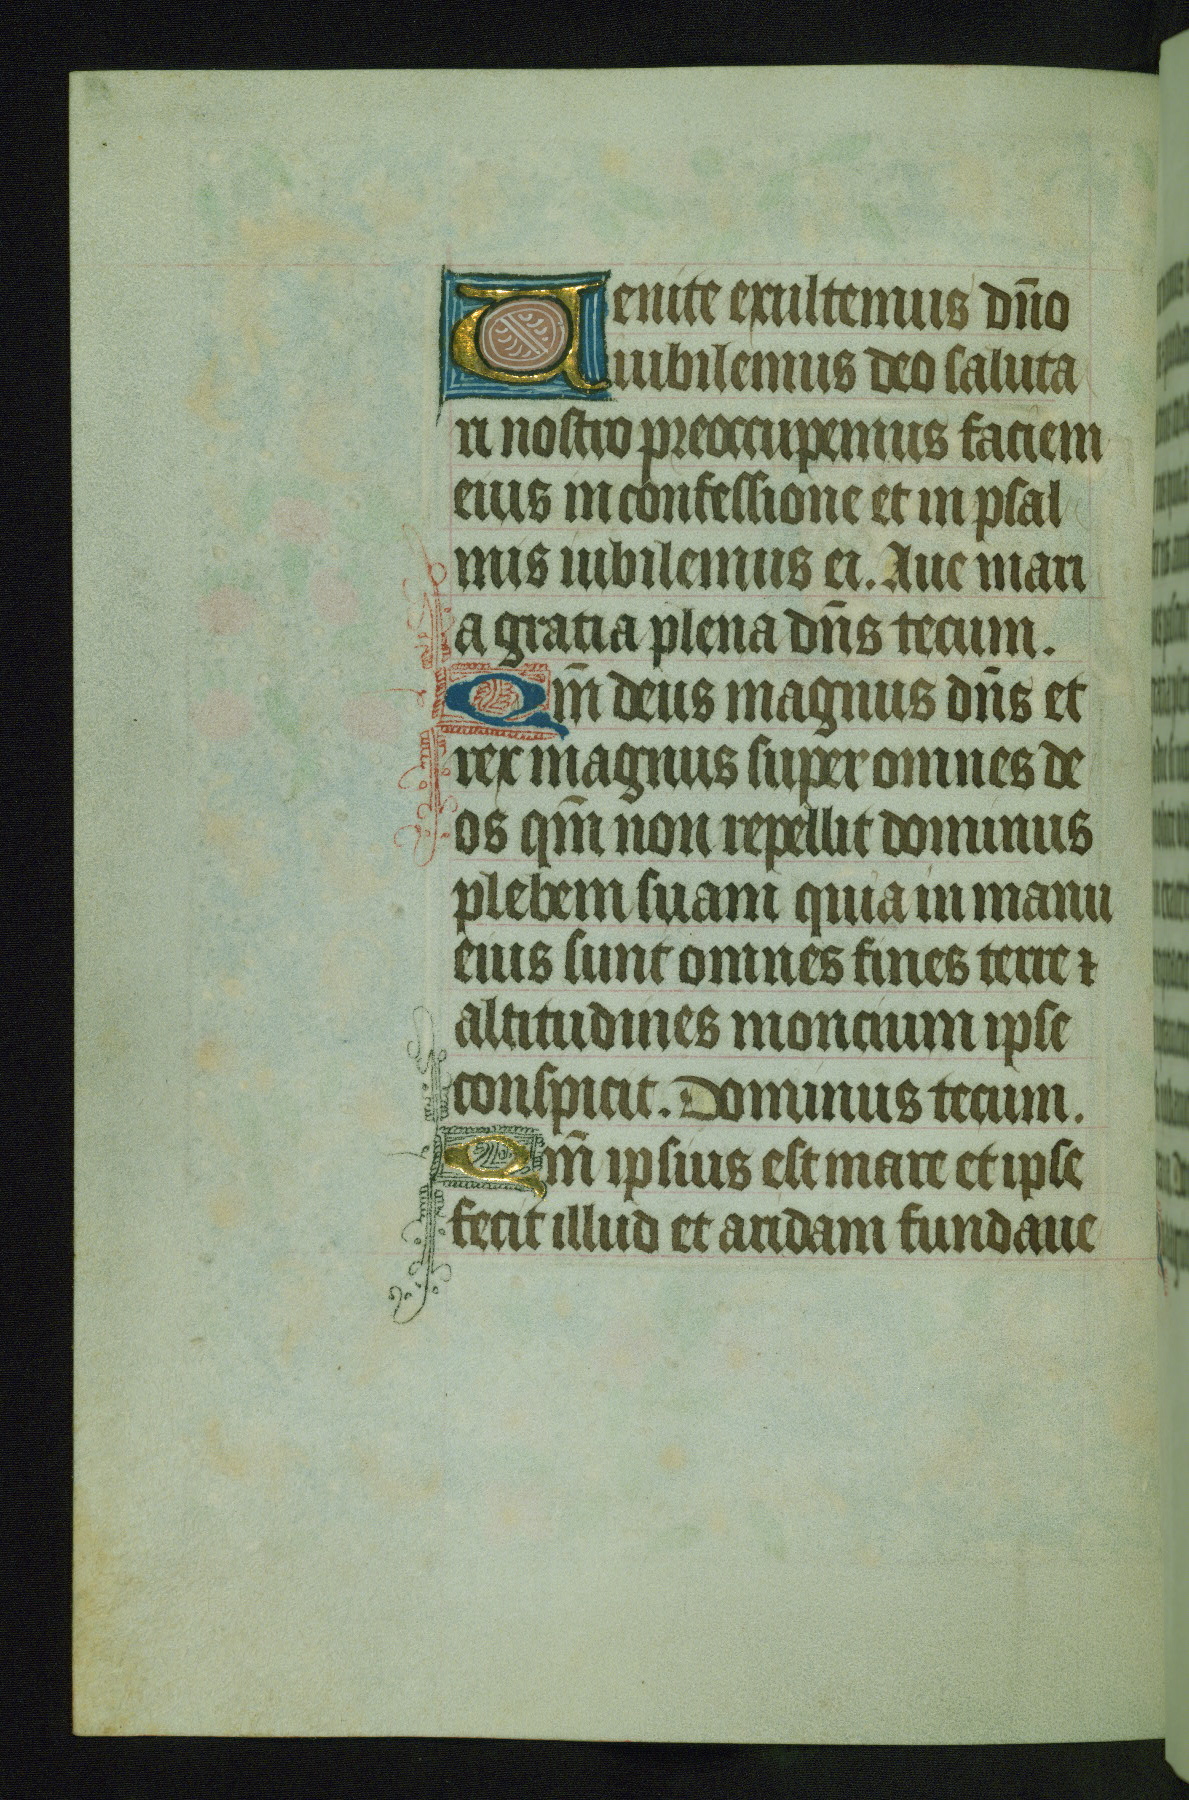 Uenite exultemus dn̄o
iubilemus deo saluta
ri nostro preoccupemus faciem
eius in confessione et in psal
mis iubilemus ei. Aue mari
a gratia plena dn̄s tecum.
Qm̄ deus magnus dn̄s et
rex magnus super omnes de
os qm̄ non repellit dominus
plebem suam quia in manu
eius sunt omnes fines terre ⁊
altitudines moncium ipse
conspicit. Dominus tecum.
Qm̄ ipsius est mare et ipse
fecit illud et aridam fundaue